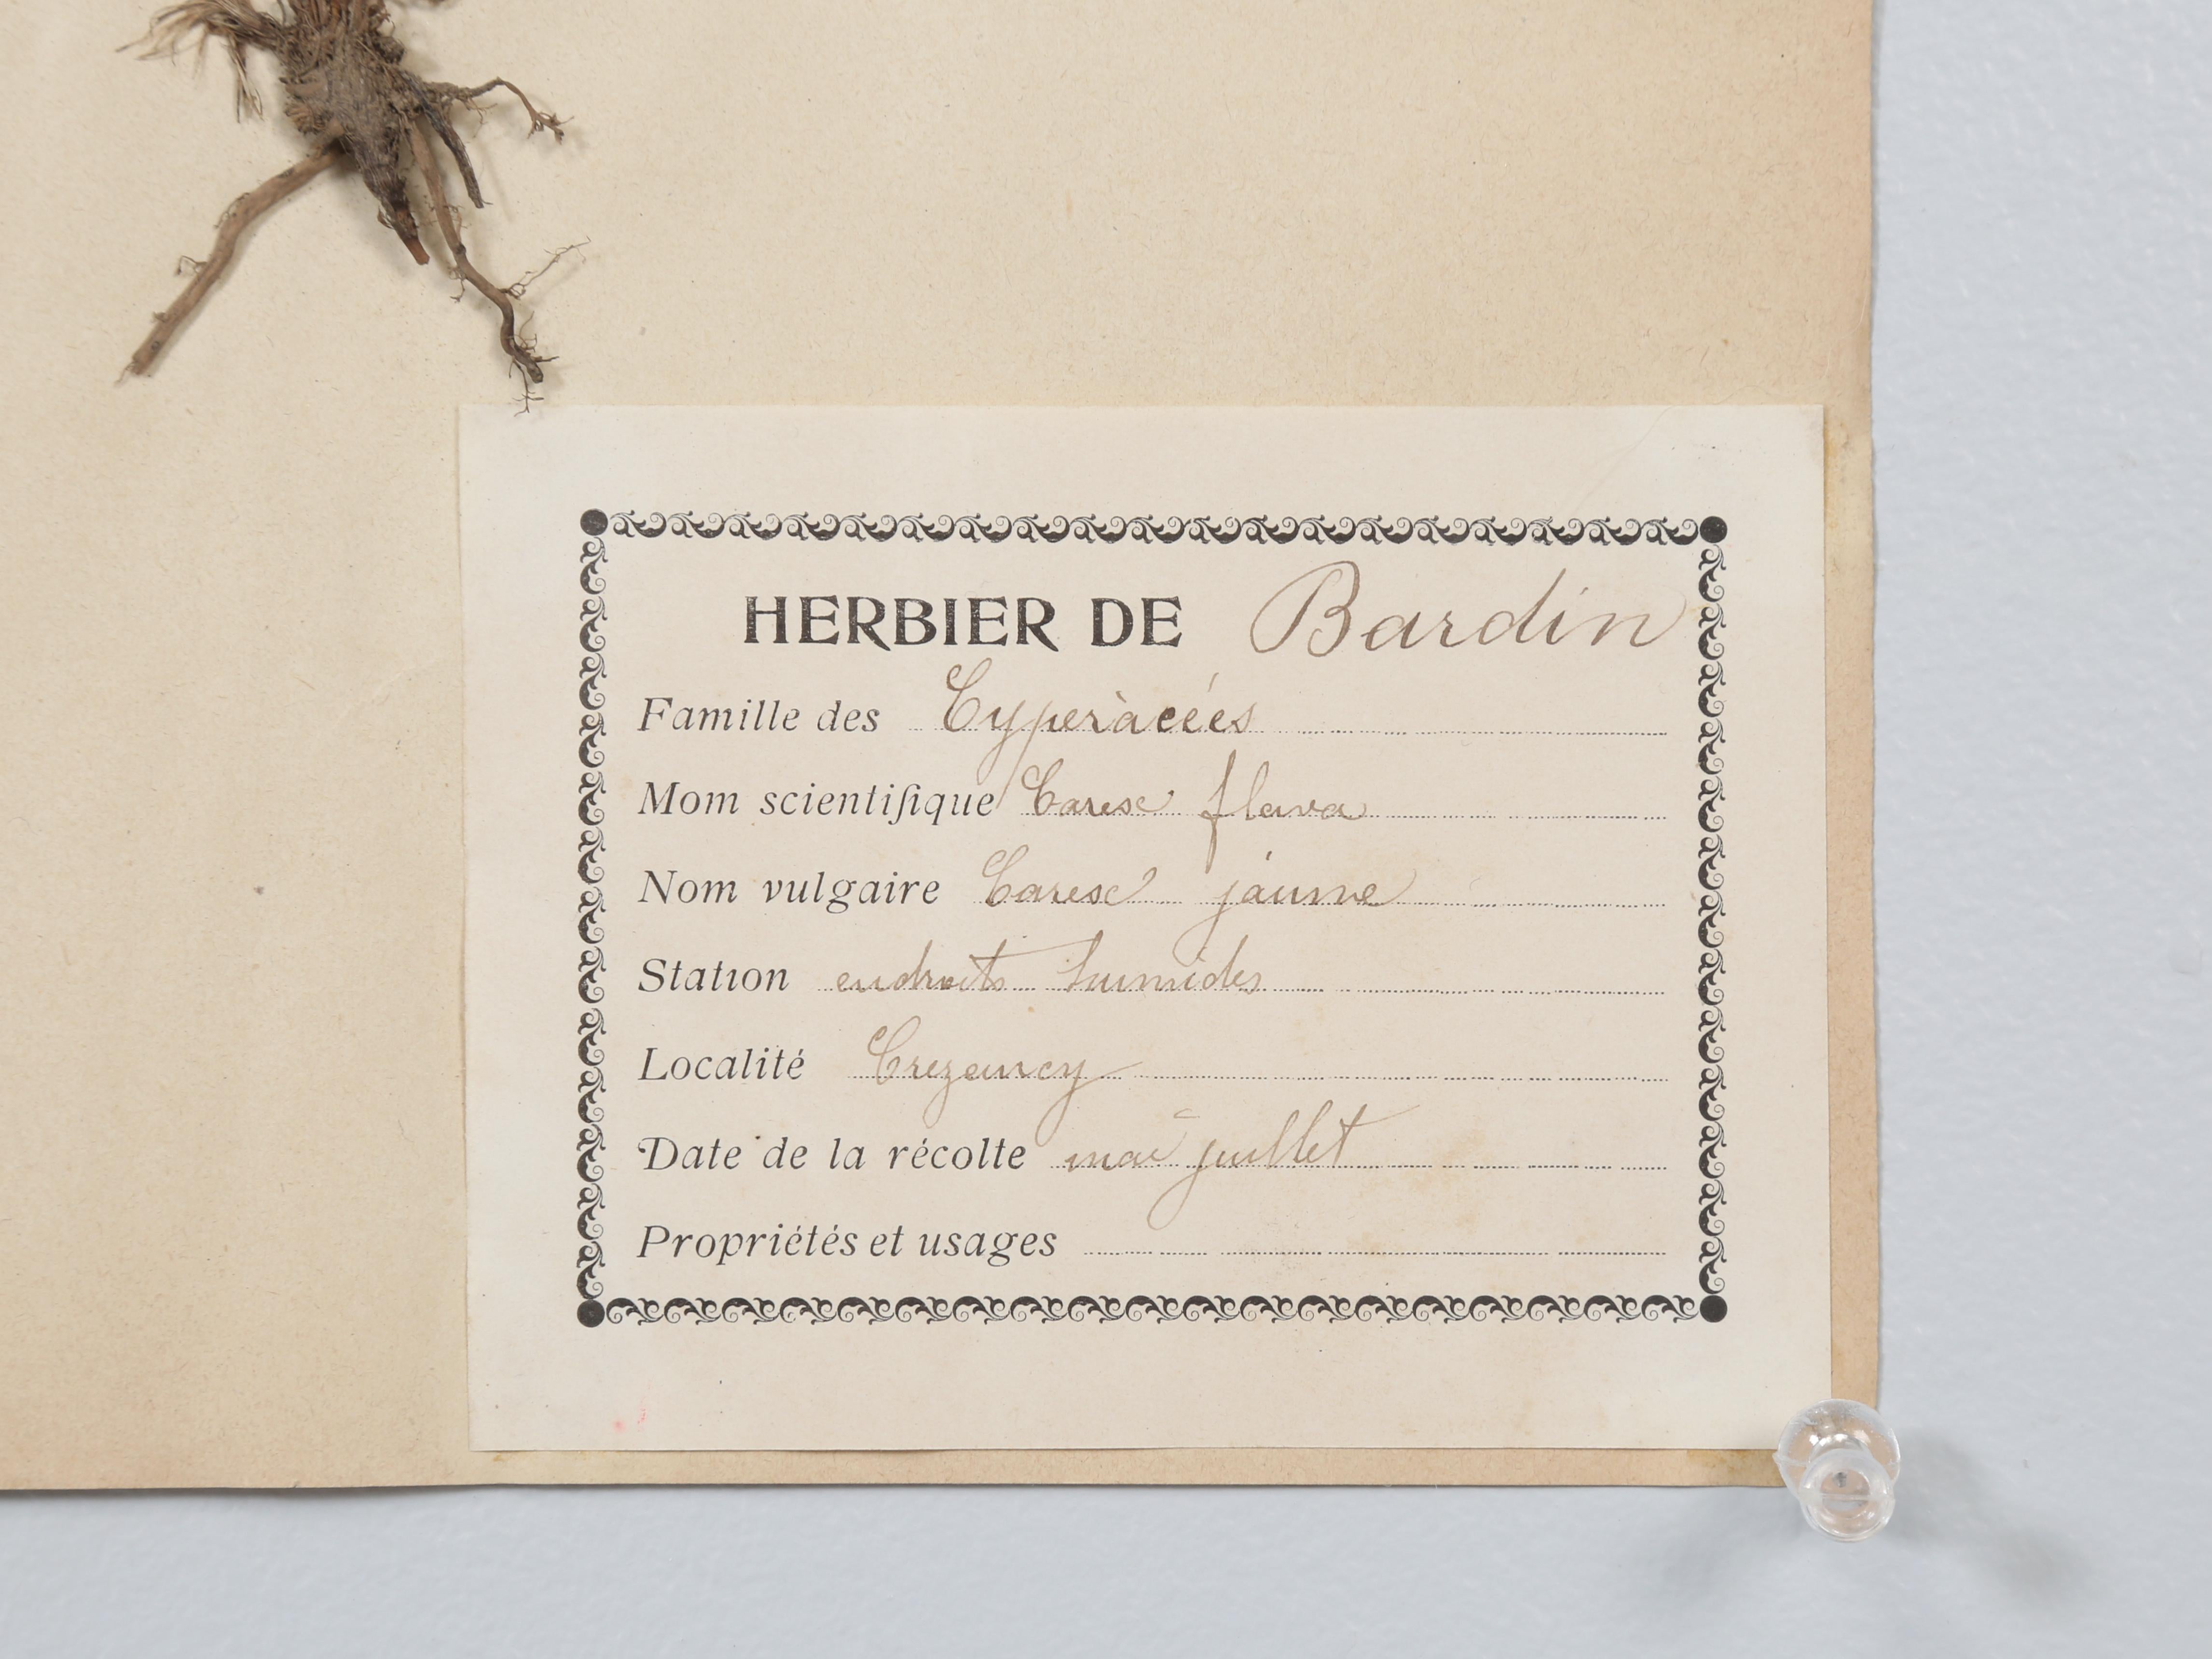 HERBIER DE Bardin
Famille des Cyperàcées
Mom scientifique Carex flava
Nom vulgaire Carex jaune
Station endroits humides
Localité Crezancy
Date de la récolte mai juillet
Propriétés et usages